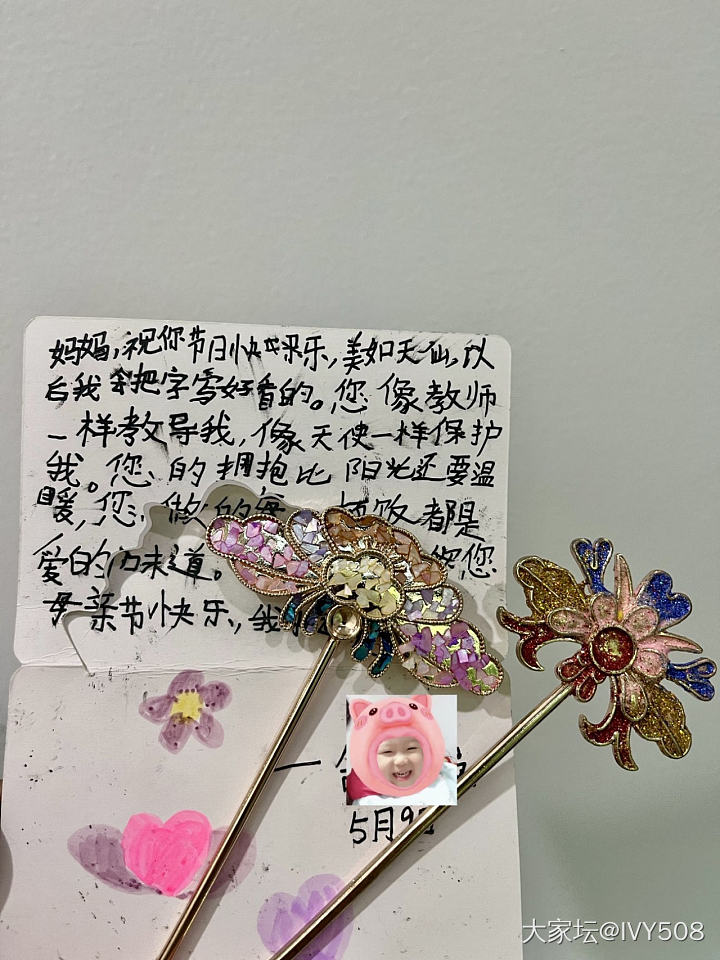 妈妈,祝你节日快乐,美如天仙,以
后我会把字写好看的。您像教师
一样教导我,像天使一样保护
我。您的拥抱比阳光还要温
暖,您做的每 顿饭都是
爱的味道。 您
母亲节快乐,我
一
5月9
大家坛@IVY508